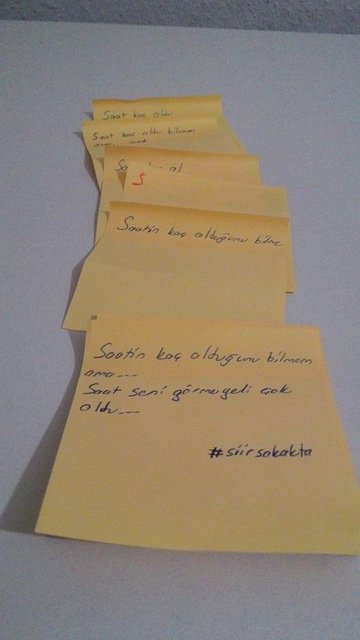 Saat kaç oldu
Saat kaç oldu bilmem
Sa
al
S
Saatin kaç olduğunu bilme
Saatin kaç olduğunu bilmem
ama---
Saat seni görmeyeli çok
oldu---
#siirsokakta